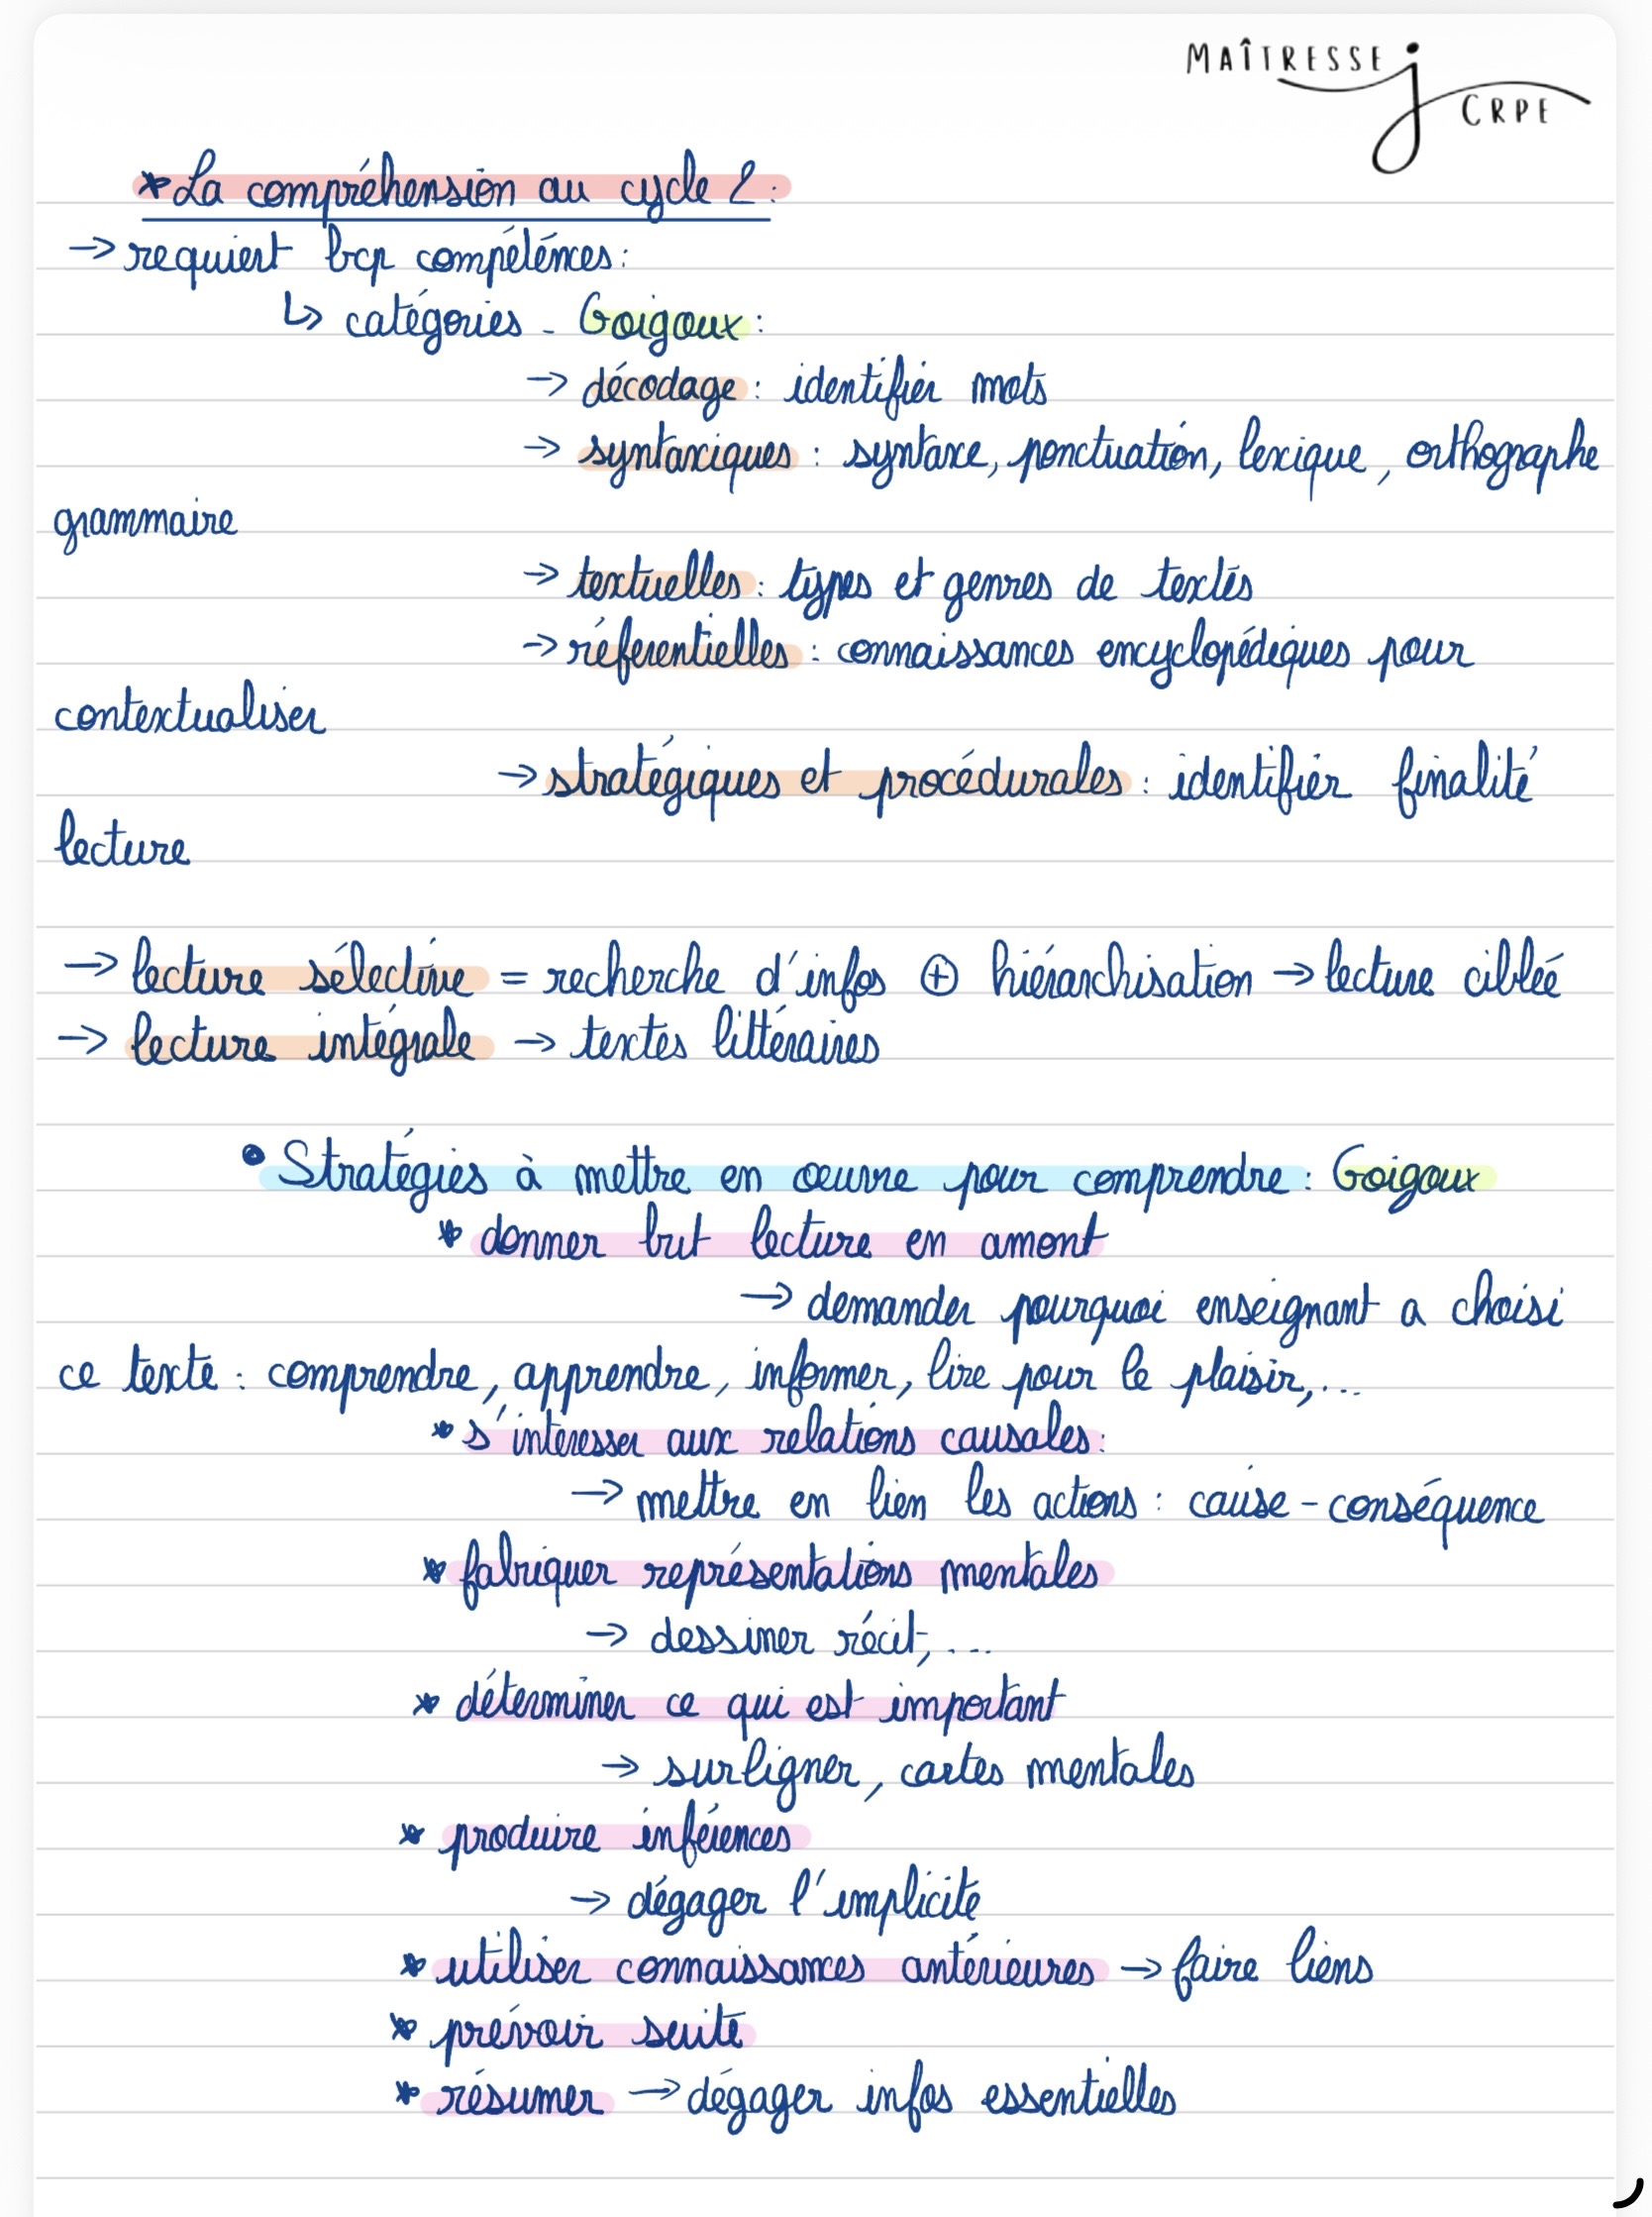 MAÎTRESSE J CRPE
* La compréhension au cycle 2 :
→ requiert bcp compétences :
↳ catégories - Goigoux :
→ décodage : identifier mots
→ syntaxiques : syntaxe, ponctuation, lexique, orthographe
grammaire
→ textuelles : types et genres de textes
→ référentielles : connaissances encyclopédiques pour
contextualiser
→ stratégiques et procédurales : identifier finalité
lecture
→ lecture sélective = recherche d'infos ⊕ hiérarchisation → lecture ciblée
→ lecture intégrale → textes littéraires
• Stratégies à mettre en œuvre pour comprendre : Goigoux
* donner but lecture en amont
→ demander pourquoi enseignant a choisi
ce texte : comprendre, apprendre, informer, lire pour le plaisir,...
* s'intéresser aux relations causales :
→ mettre en lien les actions : cause - conséquence
* fabriquer représentations mentales
→ dessiner récit, ...
* déterminer ce qui est important
→ surligner, cartes mentales
* produire inférences
→ dégager l'implicite
* utiliser connaissances antérieures → faire liens
* prévoir suite
* résumer → dégager infos essentielles